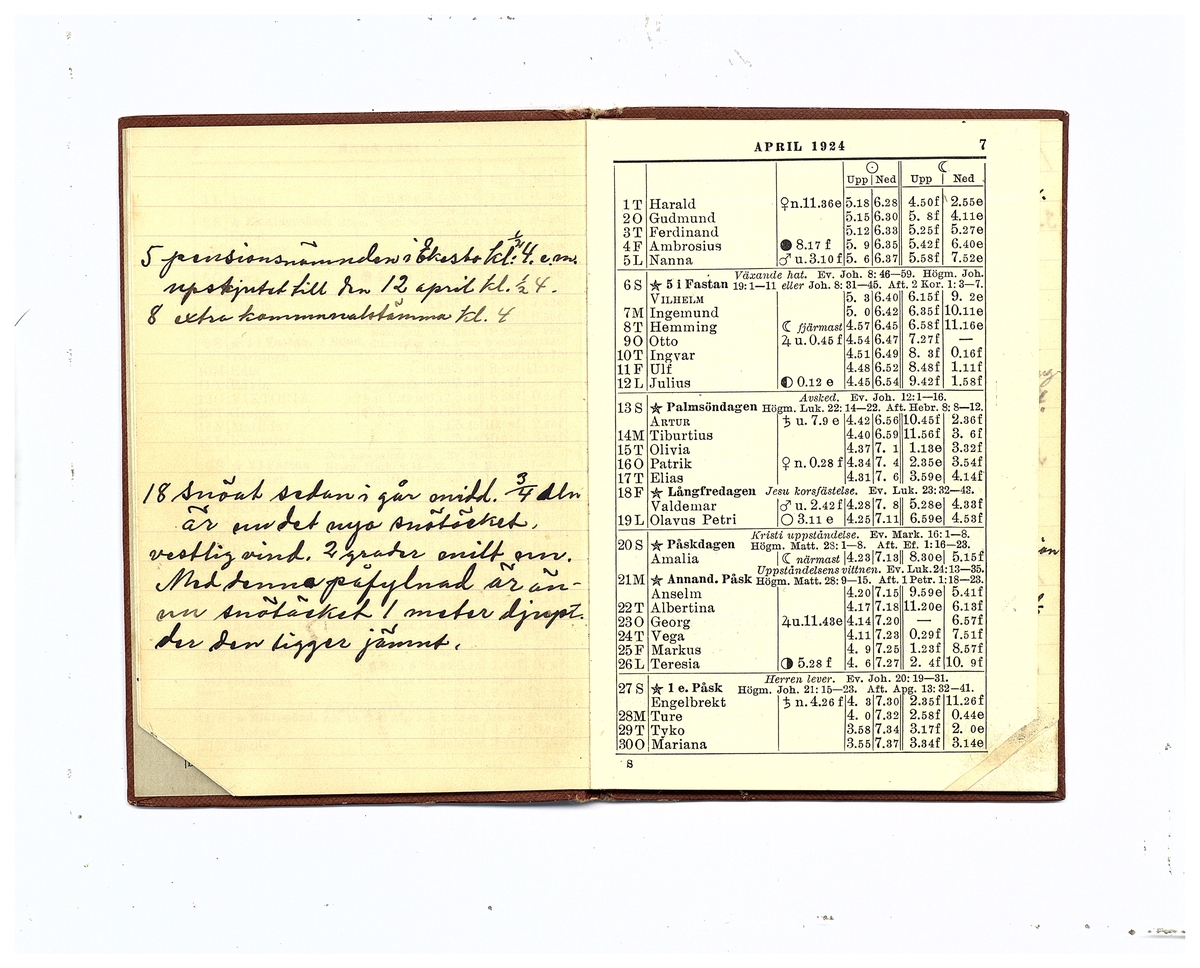 5 pensionsnämnden i Ekesta kl. ½ 4. e.m.
upskjutet till den 12 april kl. ½ 4.
8 extra kommunalstämma kl. 4
18 snöat sedan i går midd. 3/4 aln
är un det nya snötäcket.
vestlig vind. 2 grader mitt un.
Med denna påfylnad är än-
nu snötäcket 1 meter djupt.
der den ligger jämnt.
APRIL 1924 7
☉ ☾
Upp Ned Upp Ned
1 T Harald ♀ n. 11.36 e 5.18 6.28 4.50f 2.55e
2 O Gudmund 5.15 6.30 5. 8f 4.11e
3 T Ferdinand 5.12 6.33 5.25f 5.27e
4 F Ambrosius ● 8.17 f 5. 9 6.35 5.42f 6.40e
5 L Nanna ♂ u. 3.10 f 5. 6 6.37 5.58f 7.52e
Växande hat. Ev. Joh. 8: 46—59. Högm. Joh.
6 S ★ 5 i Fastan 19: 1—11 eller Joh. 8: 31—45. Aft. 2 Kor. 1: 3—7.
VILHELM 5. 3 6.40 6.15f 9. 2e
7 M Ingemund 5. 0 6.42 6.35f 10.11e
8 T Hemming ☾ fjärmast 4.57 6.45 6.58f 11.16e
9 O Otto ♃ u. 0.45 f 4.54 6.47 7.27f —
10 T Ingvar 4.51 6.49 8. 3f 0.16f
11 F Ulf 4.48 6.52 8.48f 1.11f
12 L Julius ◐ 0.12 e 4.45 6.54 9.42f 1.58f
Avsked. Ev. Joh. 12: 1—16.
13 S ★ Palmsöndagen Högm. Luk. 22: 14—22. Aft. Hebr. 8: 8—12.
ARTUR ♄ u. 7.9 e 4.42 6.56 10.45f 2.36f
14 M Tiburtius 4.40 6.59 11.56f 3. 6f
15 T Olivia 4.37 7. 1 1.13e 3.32f
16 O Patrik ♀ n. 0.28 f 4.34 7. 4 2.35e 3.54f
17 T Elias 4.31 7. 6 3.59e 4.14f
18 F ★ Långfredagen Jesu korsfästelse. Ev. Luk. 23: 32—43.
Valdemar ♂ u. 2.42 f 4.28 7. 8 5.28e 4.33f
19 L Olavus Petri ○ 3.11 e 4.25 7.11 6.59e 4.53f
Kristi uppståndelse. Ev. Mark. 16: 1—8.
20 S ★ Påskdagen Högm. Matt. 28: 1—8. Aft. Ef. 1: 16—23.
Amalia ☾ närmast 4.23 7.13 8.30e 5.15f
Uppståndelsens vittnen. Ev. Luk. 24: 13—35.
21 M ★ Annand. Påsk Högm. Matt. 28: 9—15. Aft. 1 Petr. 1: 18—23.
Anselm 4.20 7.15 9.59e 5.41f
22 T Albertina 4.17 7.18 11.20e 6.13f
23 O Georg ♃ u. 11.43 e 4.14 7.20 — 6.57f
24 T Vega 4.11 7.23 0.29f 7.51f
25 F Markus 4. 9 7.25 1.23f 8.57f
26 L Teresia ◑ 5.28 f 4. 6 7.27 2. 4f 10. 9f
Herren lever. Ev. Joh. 20: 19—31.
27 S ★ 1 e. Påsk Högm. Joh. 21: 15—23. Aft. Apg. 13: 32—41.
Engelbrekt ♄ n. 4.26 f 4. 3 7.30 2.35f 11.26f
28 M Ture 4. 0 7.32 2.58f 0.44e
29 T Tyko 3.58 7.34 3.17f 2. 0e
30 O Mariana 3.55 7.37 3.34f 3.14e
S